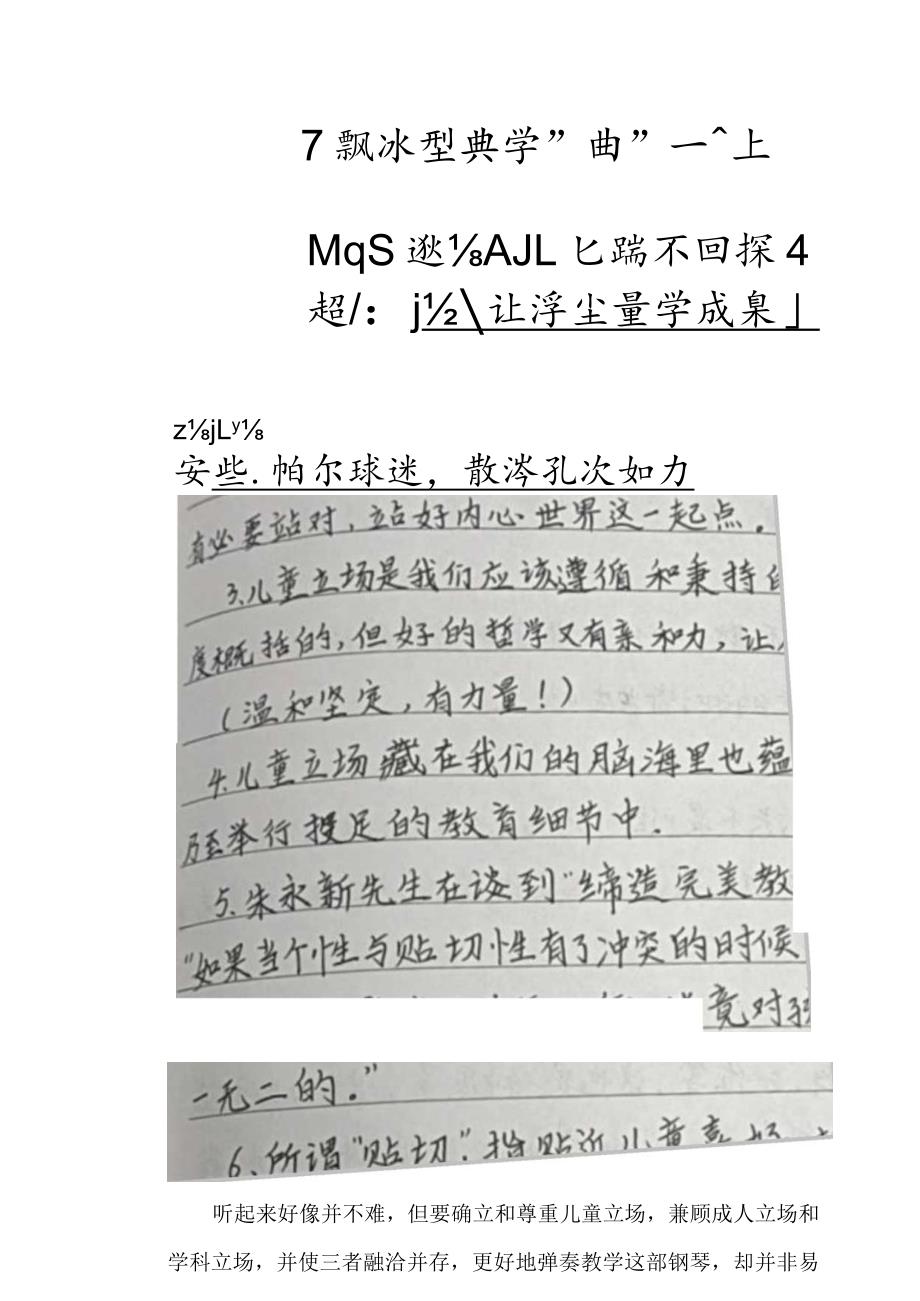 7飘冰型典学”曲”一^上
MqS逖⅛AJL匕踹不回探4
超/：j½\让浮尘量学成臬」
z⅛jLʸ⅛
安些.帕尔球迷，散涔孔次如力
有必要站对，站好内心世界这一起点。
3.儿童立场是我们应该遵循和秉持
度概括的，但好的哲学又有亲和力，让
（温和坚定，有力量！）
4.儿童立场藏在我们的脑海里也蕴
乃至举行投足的教育细节中.
5.朱永新先生在谈到“缔造完美教
“如果当个性与贴切性有了冲突的时候
竟对孩
一无二的。”
6.所谓“贴切”.指贴近儿童喜好
听起来好像并不难，但要确立和尊重儿童立场，兼顾成人立场和
学科立场，并使三者融洽并存，更好地弹奏教学这部钢琴，却并非易